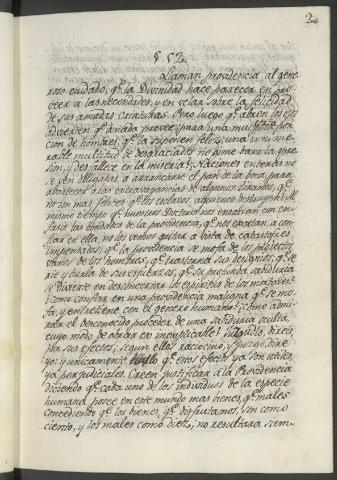 2
§ 52.
Llaman providencia, al gene
roso cuidado, qᵉ la Divinidad hace parecer en pro
veer a las necesidades, y en velar sobre la felicidad
de sus amadas criaturas. Pero luego qᵉ abren los ojos
advierten qᵉ à nada provee; para una muy corta por
cion de hombres, qᵉ la suponen feliz, una innume
rable multitud de desgraciados gime baxo la opre
sion, y desfallece en la miseria. Naciones enteras no
se ven obligadas à arrancarse el pan de la boca para
abastecer a las extravagancias de algunos tiranos, qᵉ
no son mas felices, qᵉ los esclavos, à quienes
mismo tiempo qᵉ nuestros Doctores nos ensalzan con en
fasis las bondades de la providencia, qᵉ nos exortan à con
fiar en ella, no les vemos gritar à vista de catastrofes
impensadas, qᵉ la providencia se mofa de los proyectos
vanos de los hombres, qᵉ trastorna sus designios, qᵉ se
rie y burla de sus esfuerzos, qᵉ su profunda sabiduria
se divierte en desconcertar los espiritus de los mortales?
¿como confiar en una providencia maligna qᵉ se mo
fa, y entretiene con el genero humano? ¿como admi
rar el desconocido proceder de una sabiduria oculta,
cuyo modo de obrar es inexplicable? Juzgadlo, direis,
por sus efectos; segun ellos raciocino, y juzgo, dire
yo: y unicamente hallo qᵉ estos efectos ya son utiles,
ya perjudiciales. Creen justificar a la Providencia
diciendo qᵉ cada uno de los individuos de la especie
humana posee en este mundo mas bienes, qᵉ males.
Concediendo qᵉ los bienes, qᵉ disfrutamos, son como
ciento, y los males como diez; no resultara siem